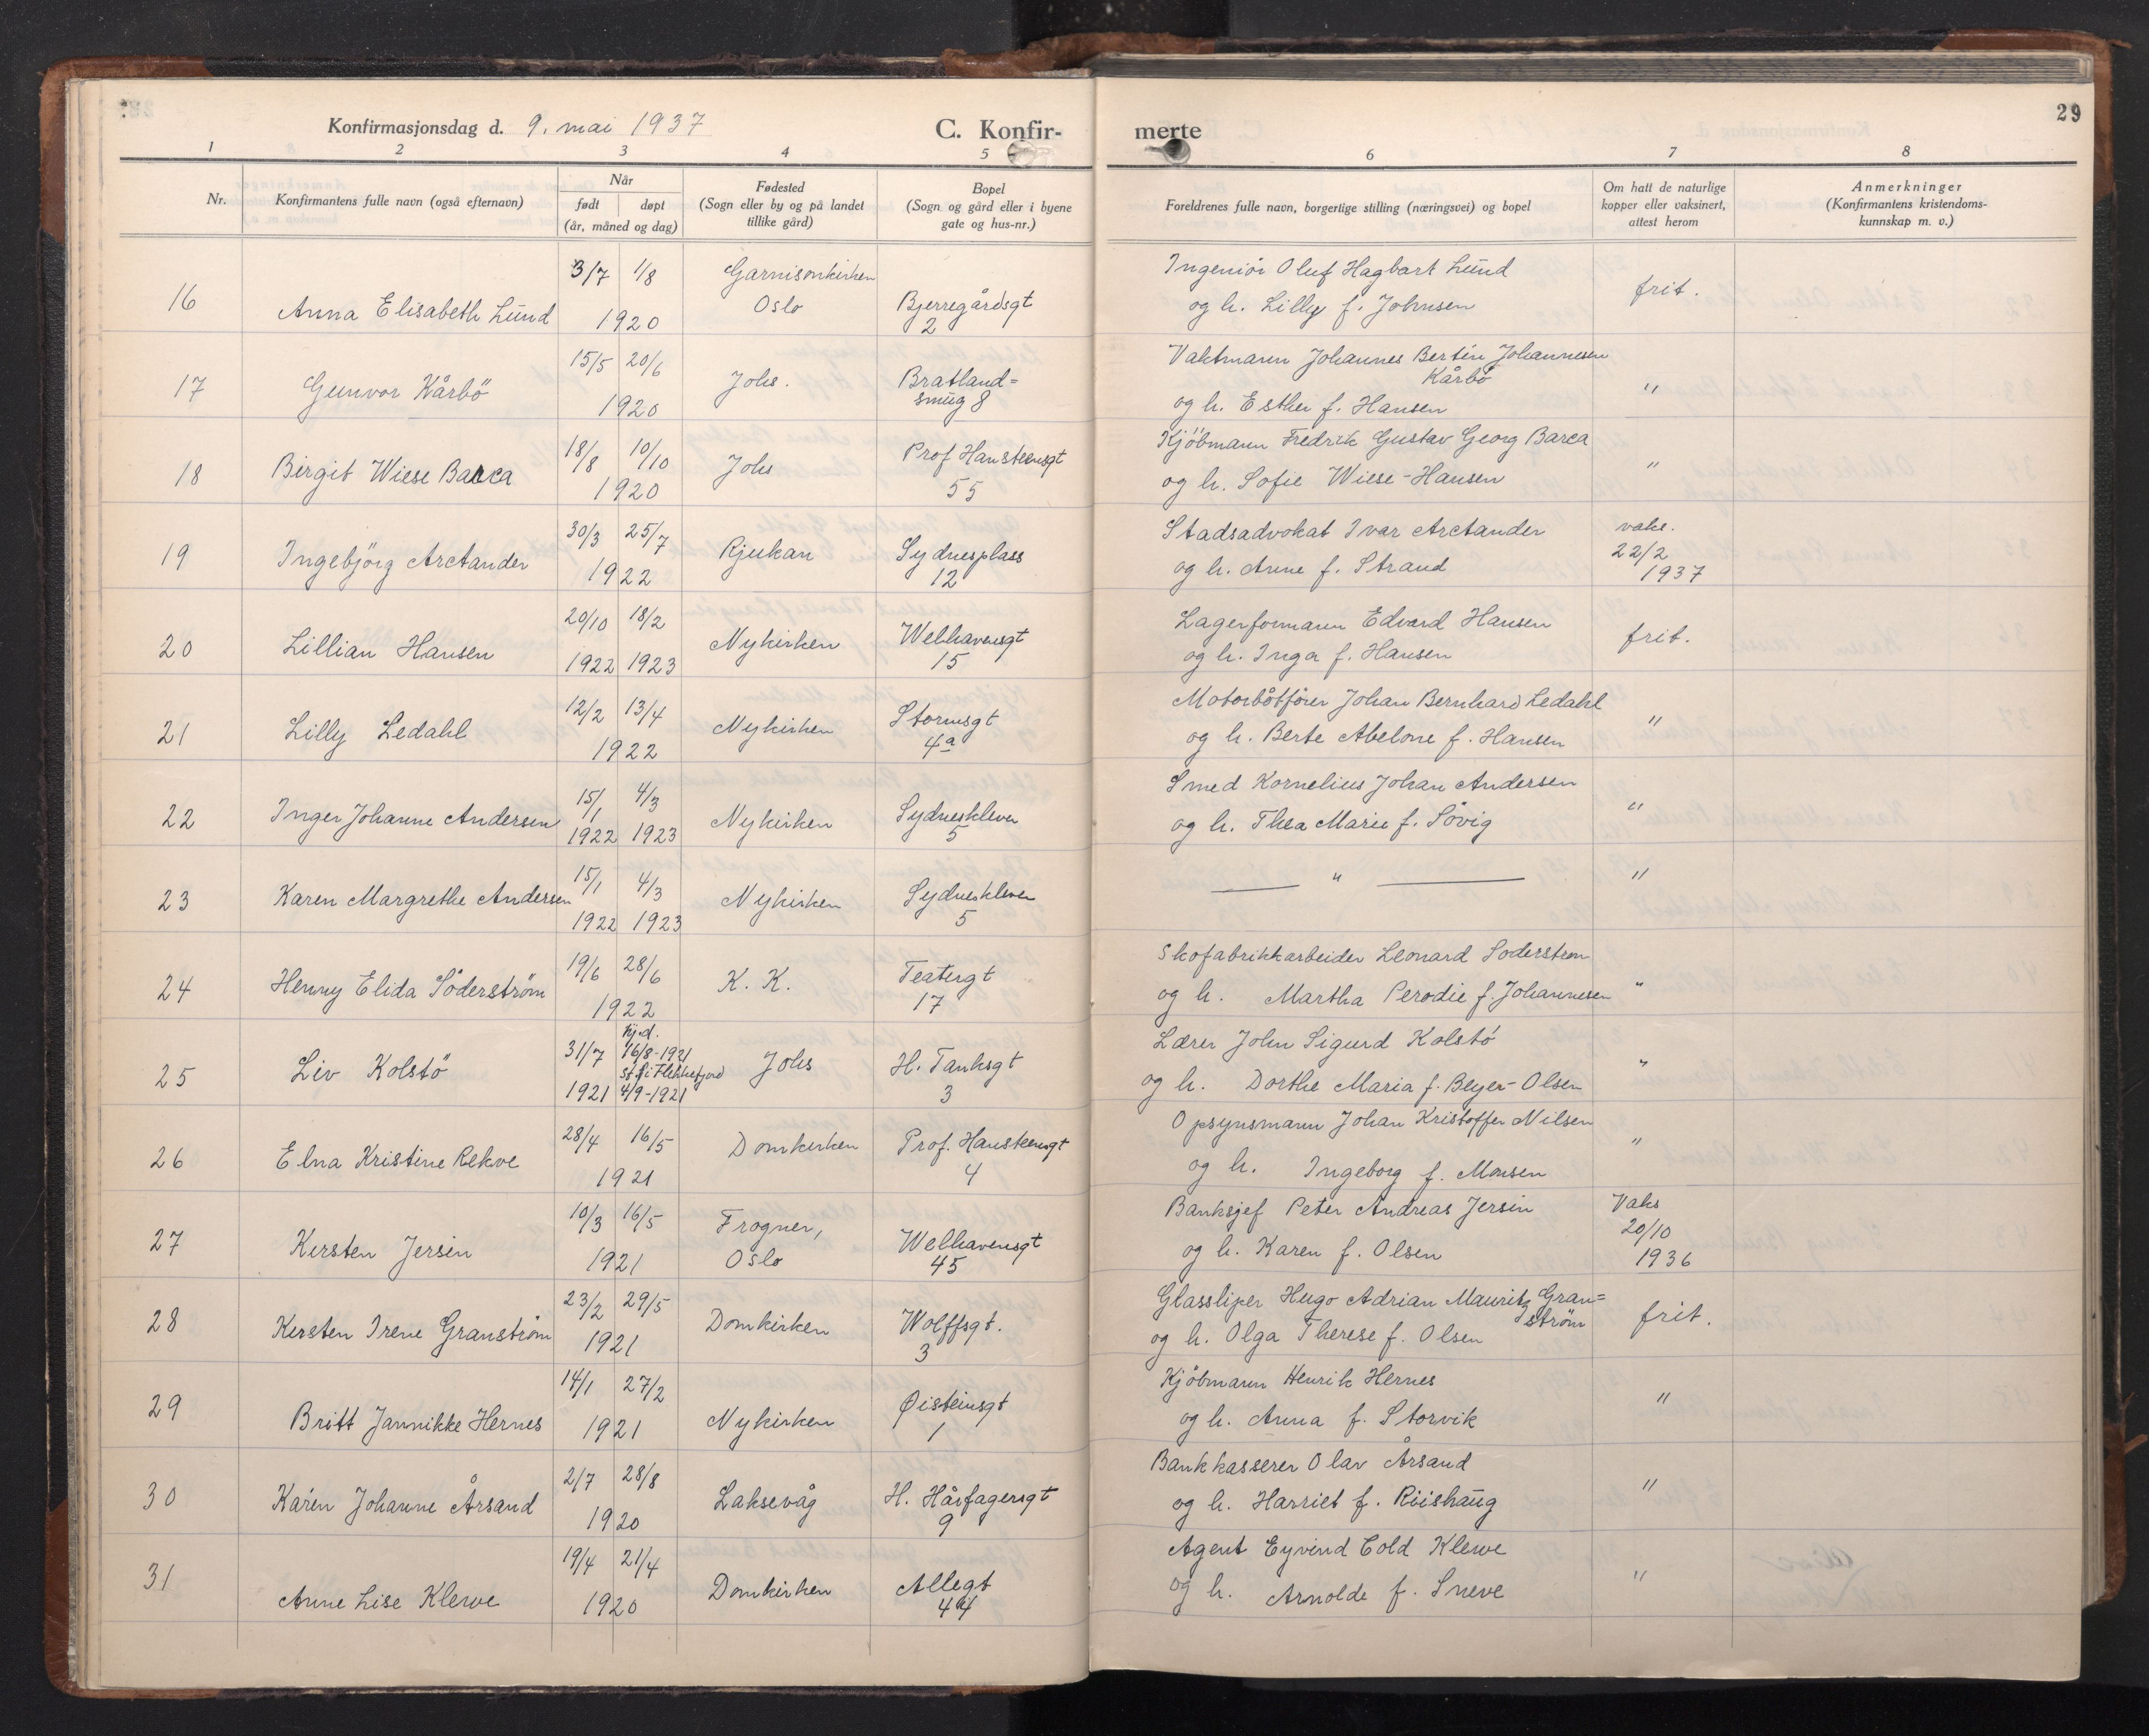 Konfirmasjonsdag d. 9. mai 1937
C. Konfir-
merte
29
1 2 3 4 5 6 7 8
Nr.
Konfirmantens fulle navn (også efternavn)
Når
født døpt
(år, måned og dag)
Fødested
(Sogn eller by og på landet
tillike gård)
Bopel
(Sogn og gård eller i byene
gate og hus-nr.)
Foreldrenes fulle navn, borgerlige stilling (næringsvei) og bopel
Om hatt de naturlige
kopper eller vaksinert,
attest herom
Anmerkninger
(Konfirmantens kristendoms-
kunnskap m. v.)
3/7 1/8 Garnisonkirken Ingeniör Oluf Hagbart Lund
16 Anna Elisabeth Lund 1920 Oslo Bjerregårdsgt 2 og h. Lilly f. Johnsen frit.
15/5 20/6 Vaktmann Johannes Bertin Johannesen
17 Gunvor Kårbö 1920 Johs. Bratland=
smug 8 Kårbö "
og h. Esther f. Hansen
18/8 10/10 Kjöbmann Fredrik Gustav Georg Barca
18 Birgit Wiese Barca 1920 Johs Prof Hansteensgt
55 og h. Sofie Wiese-Hansen "
30/3 25/7 Stadsadvokat Ivar Arctander vaks.
19 Ingebjörg Arctander 1922 Rjukan Sydnesplass
12 og h. Anne f. Strand 22/2
1937
20/10 18/2 Lagerformann Edvard Hansen
20 Lillian Hansen 1922 1923 Nykirken Welhavensgt
15 og h. Inga f. Hansen frit.
12/2 13/4 Motorbåtförer Johan Bernhard Ledahl
21 Lilly Ledahl 1922 Nykirken Stormsgt
4a og h. Berte Abelone f. Hansen "
15/1 4/3 Smed Kornelius Johan Andersen
22 Inger Johanne Andersen 1922 1923 Nykirken Sydneskleven
5 og h. Thea Marie f. Sövig "
15/1 4/3
23 Karen Margrethe Andersen 1922 1923 Nykirken Sydneskleven
5 — " — "
19/6 28/6 Skofabrikkarbeider Leonard Soderstrom
24 Henny Elida Söderström 1922 K. K. Teatergt
17 og h. Martha Perodie f. Johannesen "
31/7 hj.d.
16/8-1921 Lærer John Sigurd Kolstö
25 Liv Kolstö 1921 st. f. i Flekkefjord
4/9-1921 Johs H. Tanksgt
3 og h. Dorthe Maria f. Beyer-Olsen "
28/4 16/5 Opsynsmann Johan Kristoffer Nilsen
26 Elna Kristine Rekve 1921 Domkirken Prof. Hansteensgt
4 og h. Ingeborg f. Monsen "
10/3 16/5 Frogner, Banksjef Peter Andreas Jersin Vaks
27 Kirsten Jersin 1921 Oslo Welhavensgt
45 og h. Karen f. Olsen 20/10
1936
23/2 29/5 Glassliper Hugo Adrian Mauritz Gran=
ström
28 Kirsten Irene Granström 1921 Domkirken Wolffsgt.
3 og h. Olga Therese f. Olsen frit.
14/1 27/2 Kjöbmann Henrik Hernes
29 Britt Jannikke Hernes 1921 Nykirken Øisteinsgt
1 og h. Anna f. Storvik "
2/7 28/8 Bankkasserer Olav Årsand
30 Karen Johanne Årsand 1920 Laksevåg H. Hårfagersgt
9 og h. Harriet f. Riishaug "
19/4 21/4 Agent Eyvind Cold Klewe
31 Anne Lise Klewe 1920 Domkirken Allegt
44 og h. Arnolde f. Sneve "